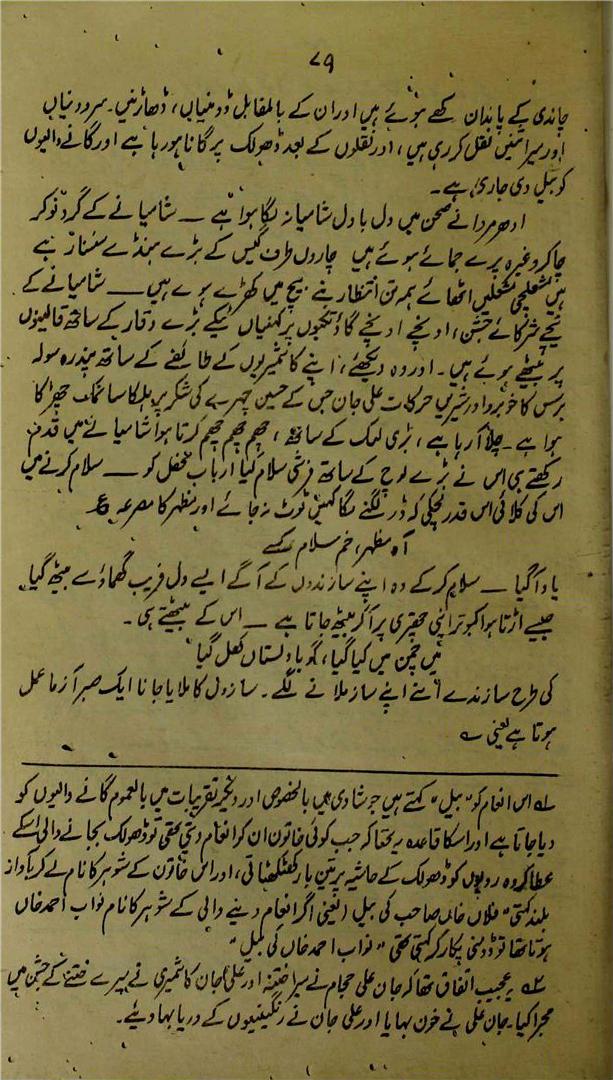 ۷۹
چاندی کے پاندان کھے ہوئے ہیں اور ان کے بالمقابل ڈومنیاں، ڈھاڑنیں۔ سرودنیاں
اور میراثنیں نقل کر رہی ہیں، اور نقلوں کے بعد ڈھولک پر گانا ہو رہا ہے اور گانے والیوں
کو بیل دی جا رہی ہے۔
ادھر مردانے صحن میں دل بادل شامیانہ لگا ہوا ہے — شامیانے کے گرد نوکر
چاکر وغیرہ پرے جمائے ہوئے ہیں چاروں طرف گیس کے بڑے ہنڈے سنسنار ہے
ہیں مشعلچی مشعلیں اٹھائے ہمہ تن انتظار بنے بیچ میں کھڑے ہوے ہیں — شامیانے کے
نیچے شرکائے جشن، اونچے اونچے گاؤ تکیوں پر کہنیاں ٹیکے بڑے وقار کے ساتھ قالینوں
پر بیٹھے ہوئے ہیں۔ اور وہ دیکھئے، اپنے کاشمیریوں کے طائفے کے ساتھ پندرہ سولہ
برس کا خوبرو اور شیریں حرکات علی جان جس کے حسین چہرے کی شکر پر ہلکا سا نمک چھڑکا
ہوا ہے۔ چلا آ رہا ہے، بڑی لمک کے ساتھ، چھم چھم چھم کرتا ہوا شامیانے میں قدم
رکھتے ہی اس نے بڑے لوچ کے ساتھ فرشی سلام کیا ارباب محفل کو — سلام کرنے میں
اس کی کلائی اس قدر لچکی کہ ڈر لگنے لگا کہیں ٹوٹ نہ جائے اور مظہر کا مصرعہ ؏
آہ مظہر، خم سلام کسے
یاد آ گیا — سلام کر کے وہ اپنے سازندوں کے آگے ایسے دل فریب گھماؤ سے بیٹھ گیا
جیسے اڑتا ہوا کبوتر اپنی چھتری پر آ کر بیٹھ جاتا ہے — اس کے بیٹھتے ہی۔
"میں چمن میں کیا گیا، گویا دبستاں کھل گیا"
کی طرح سازندے اپنے اپنے ساز ملانے لگے۔ سازوں کا ملایا جانا ایک صبر آزما عمل
ہوتا ہے یعنی ؎
؎ اس انعام کو "بیل" کہتے ہیں جو شادی میں بالخصوص اور دیگر تقریبات میں بالعموم گانے والیوں کو
دیا جاتا ہے اور اس کا قاعدہ یہ تھا کہ جب کوئی خاتون ان کو انعام دیتی تھی تو ڈھولک بجانے والی اسکے
عطا کردہ روپوں کو ڈھولک کے حاشیہ پر تین بار کھٹکھٹاتی، اور اس خاتون کے شوہر کا نام لے کر بآواز
بلند کہتی "فلاں خاں صاحب کی بیل (یعنی اگر انعام دینے والی کے شوہر کا نام نواب احمد خاں
ہوتا تھا تو ڈومنی پکار کر کہتی تھی "نواب احمد خاں کی بیل"
؎ یہ عجیب اتفاق تھا کہ جان علی حجام نے میرا ختنہ اور علی جان کاشمیری نے میرے ختنے کے جشن میں
مجرا کیا۔ جان علی نے خون بہایا اور علی جان نے رنگینیوں کے دریا بہا دیئے۔